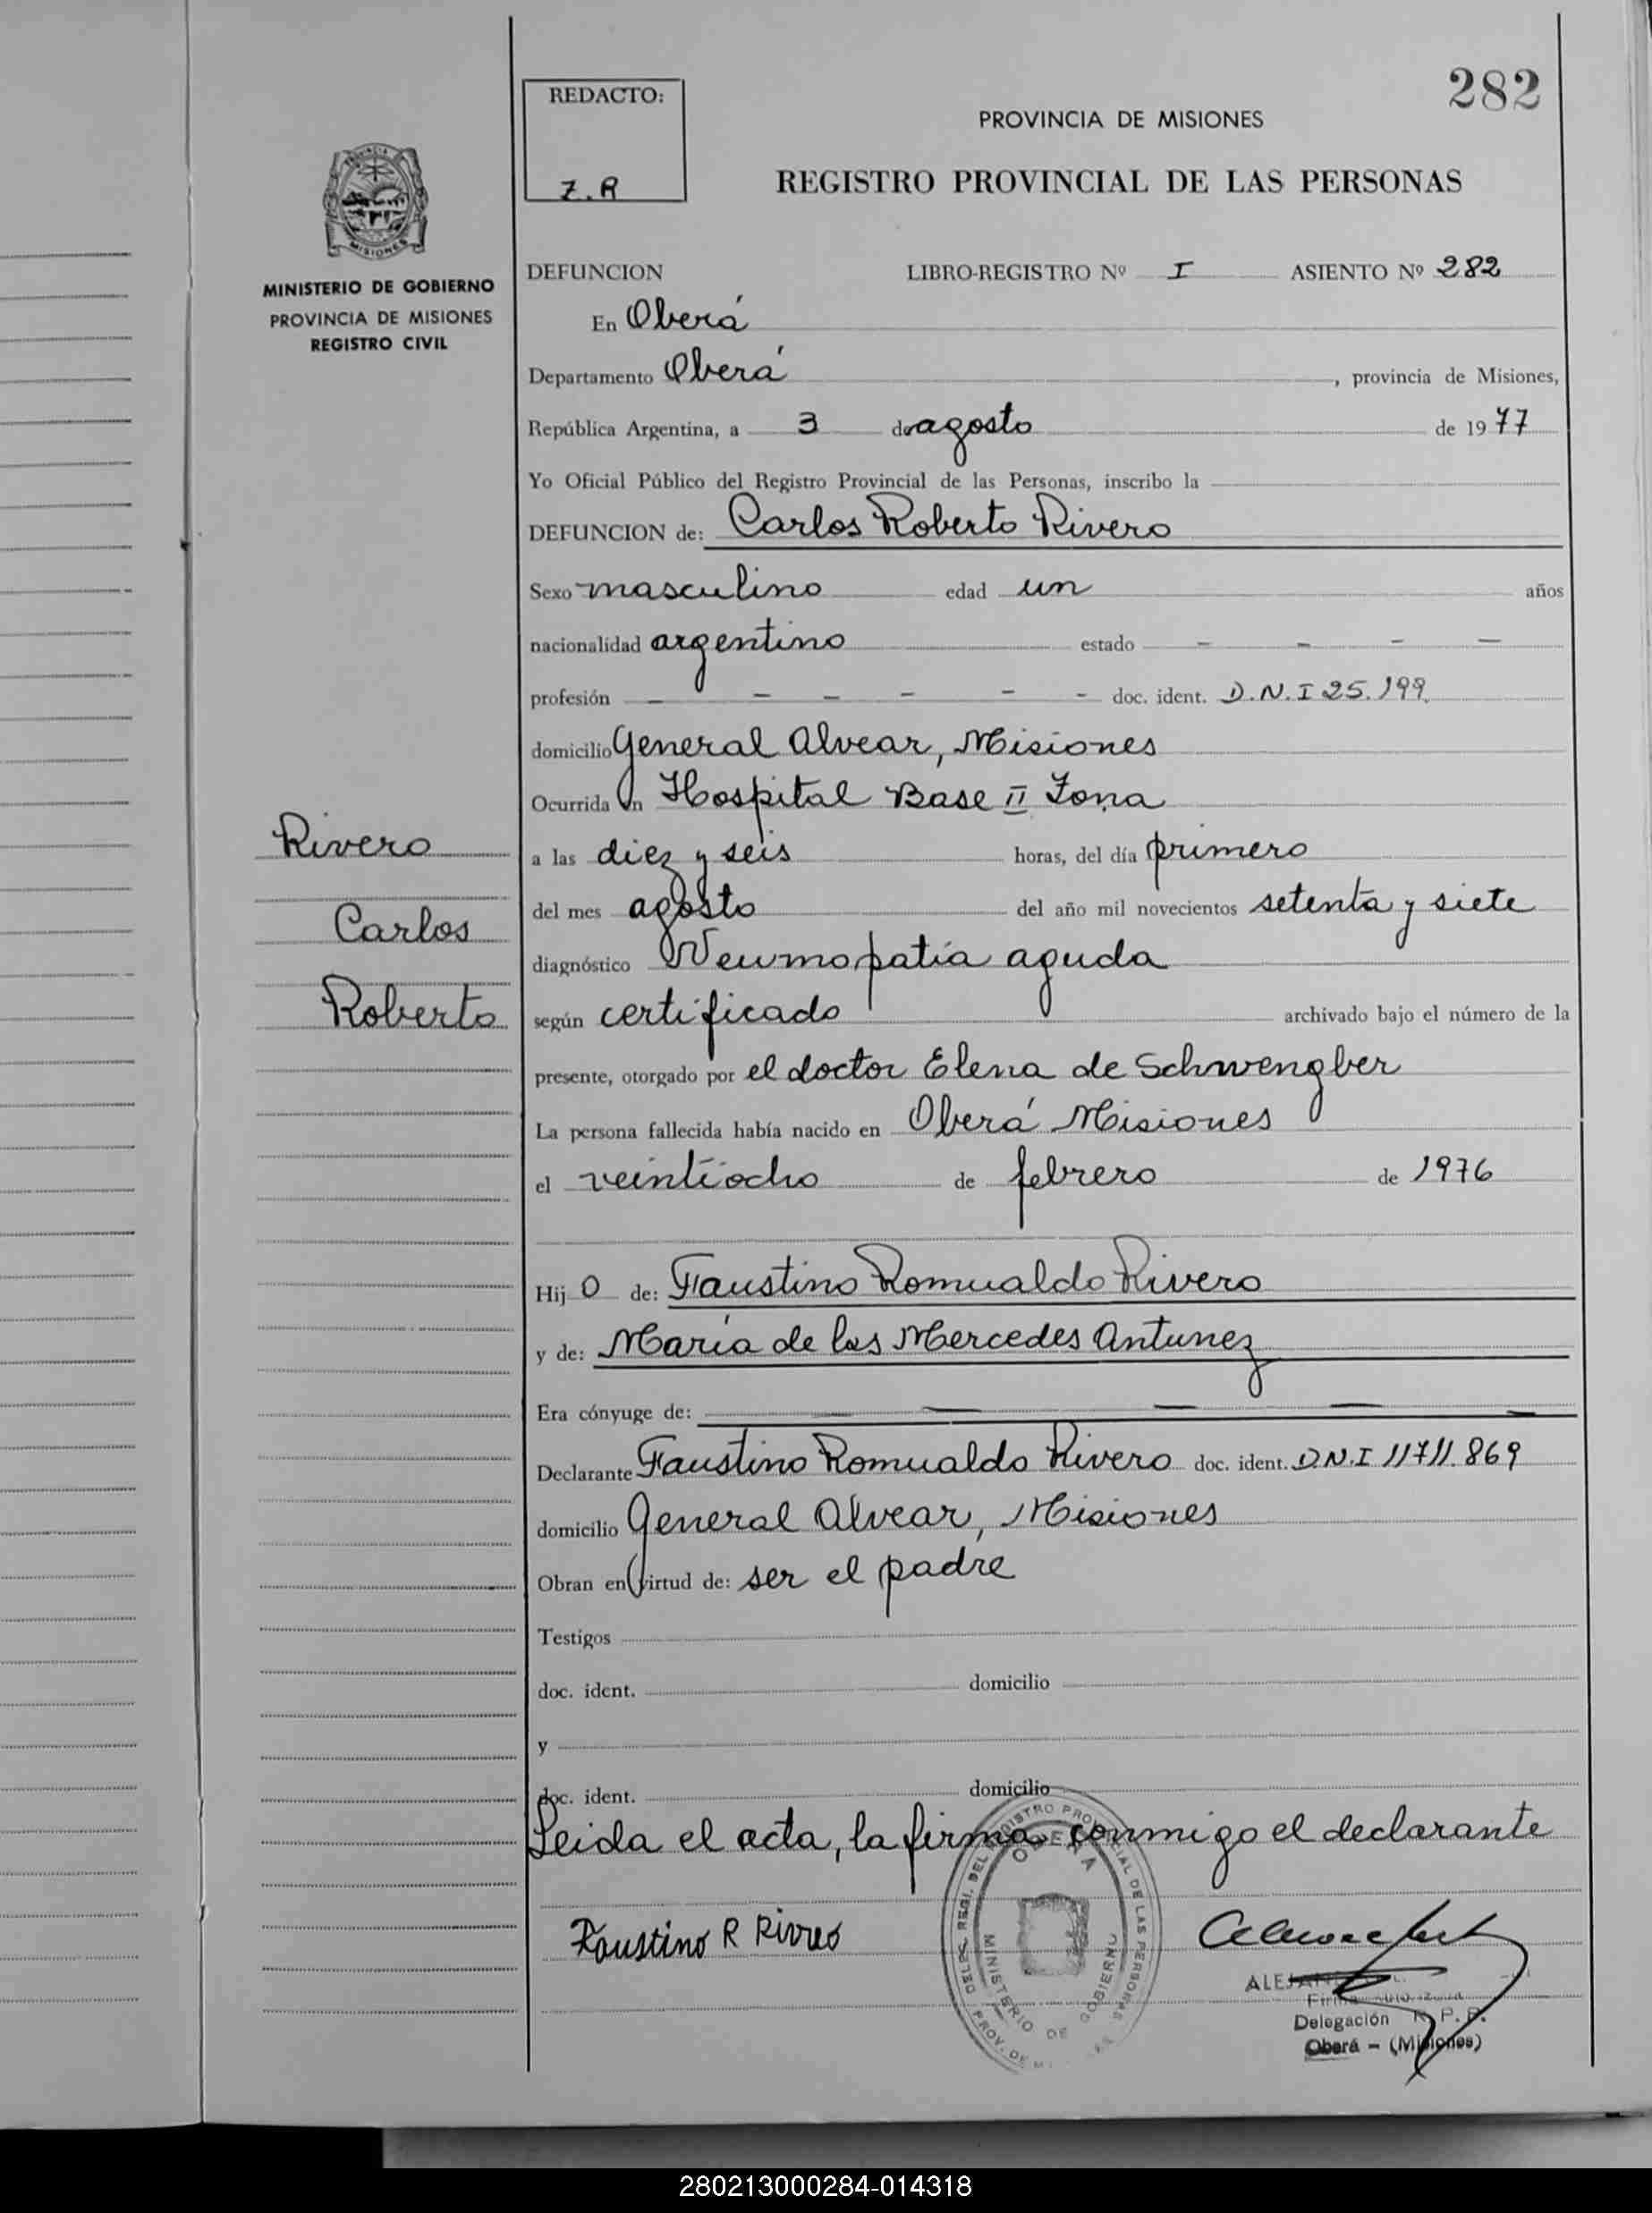 282
REDACTO:
Z.R
PROVINCIA DE MISIONES
REGISTRO PROVINCIAL DE LAS PERSONAS
MISIONES
MINISTERIO DE GOBIERNO
PROVINCIA DE MISIONES
REGISTRO CIVIL
DEFUNCION LIBRO-REGISTRO Nº I ASIENTO Nº 282
En Oberá
Departamento Oberá, provincia de Misiones,
República Argentina, a 3 de agosto de 1977
Yo Oficial Público del Registro Provincial de las Personas, inscribo la
DEFUNCION de: Carlos Roberto Rivero
Sexo masculino edad un años
nacionalidad argentino estado - - - -
profesión - - - - - - doc. ident. D.N.I 25.199.
domicilio General Alvear, Misiones
Ocurrida en Hospital Base II Zona
Rivero
a las diez y seis horas, del día primero
Carlos
del mes agosto del año mil novecientos setenta y siete
diagnóstico Neumopatía aguda
Roberto
según certificado archivado bajo el número de la
presente, otorgado por el doctor Elena de Schwengber
La persona fallecida había nacido en Oberá Misiones
el veintiocho de febrero de 1976
Hijo de: Faustino Romualdo Rivero
y de: María de las Mercedes Antunez
Era cónyuge de: - - - - -
Declarante Faustino Romualdo Rivero doc. ident. D.N.I 11711.869
domicilio General Alvear, Misiones
Obran en virtud de: ser el padre
Testigos
doc. ident. domicilio
y
doc. ident. domicilio
Leida el acta, la firma conmigo el declarante
REGISTRO PROVINCIAL DE LAS PERSONAS
OBERA
MINISTERIO DE GOBIERNO
Faustino R Rivreo
Delegación R. P. P.
Oberá - (Misiones)
280213000284-014318